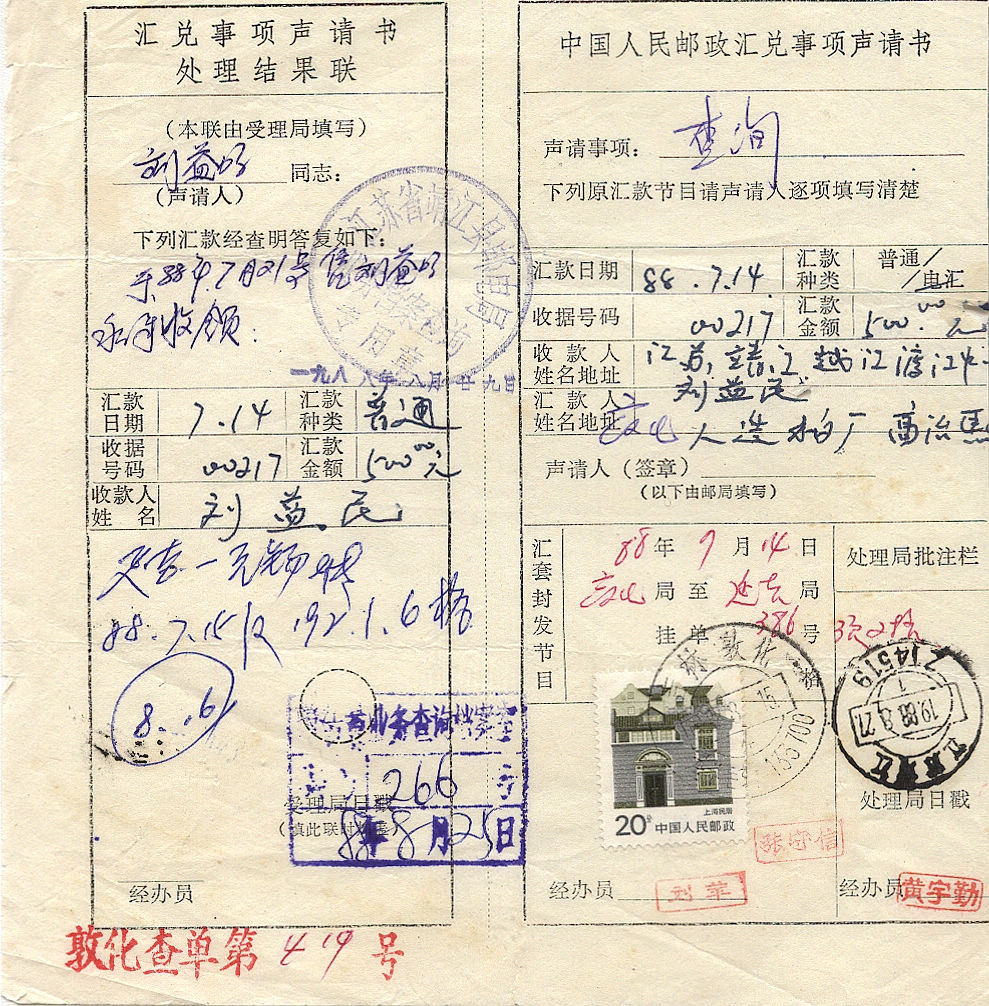 汇兑事项声请书
处理结果联
(本联由受理局填写)
刘益民 同志:
(声请人)
下列汇款经查明答复如下:
88年7月21号 刘益民
收领.
江苏省靖江县邮电局
专用章
一九八八年八月廿九日
汇款日期 7.14 汇款种类 普通
收据号码 00217 汇款金额 500.00元
收款人姓名 刘益民
88.7.15 192.1.6格
8. .6
业务查询档案室
266 号
受理局日戳
88年8月25日
经办员
敦化查单第 419 号
中国人民邮政汇兑事项声请书
声请事项: 查询
下列原汇款节目请声请人逐项填写清楚
汇款日期 88.7.14 汇款种类 普通/电汇
收据号码 00217 汇款金额 500.00元
收款人姓名地址 江苏靖江越江渡江
刘益民
汇款人姓名地址 敦化人造板厂 高治
声请人(签章)
(以下由邮局填写)
汇套封发节目
88年 9月 14日
敦化局至延吉局
挂单 386 号
格
处理局批注栏
吉林敦化
133700
214519
1988.8.27
20分 中国人民邮政
上海民居
处理局日戳
张守信
经办员 刘苹
经办员 黄宇勤